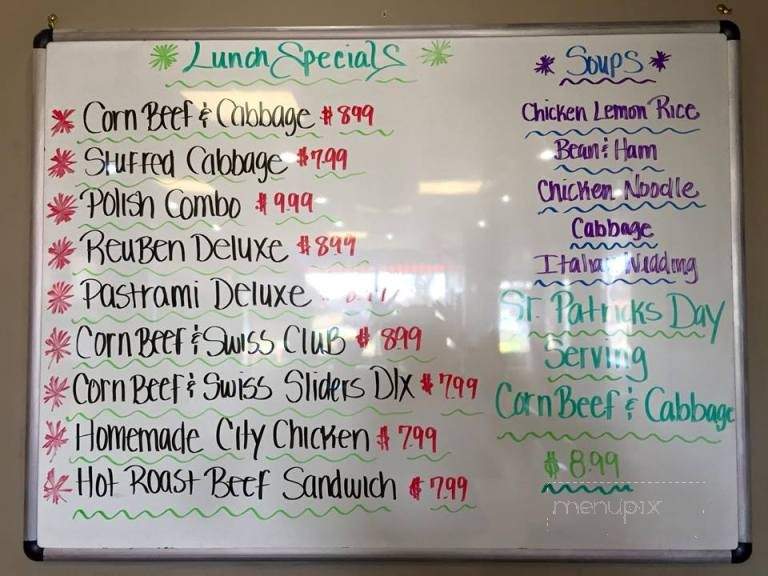 Lunch Specials
Corn Beef & Cabbage $8.99
Stuffed Cabbage $7.99
Polish Combo $9.99
Reuben Deluxe $8.99
Pastrami Deluxe
Corn Beef & Swiss Club $8.99
Corn Beef & Swiss Sliders Dlx $7.99
Homemade City Chicken $7.99
Hot Roast Beef Sandwich $7.99
Soups
Chicken Lemon Rice
Bean & Ham
Chicken Noodle
Cabbage
Italian Wedding
St. Patricks Day
Serving
Corn Beef & Cabbage
$8.99
menupix